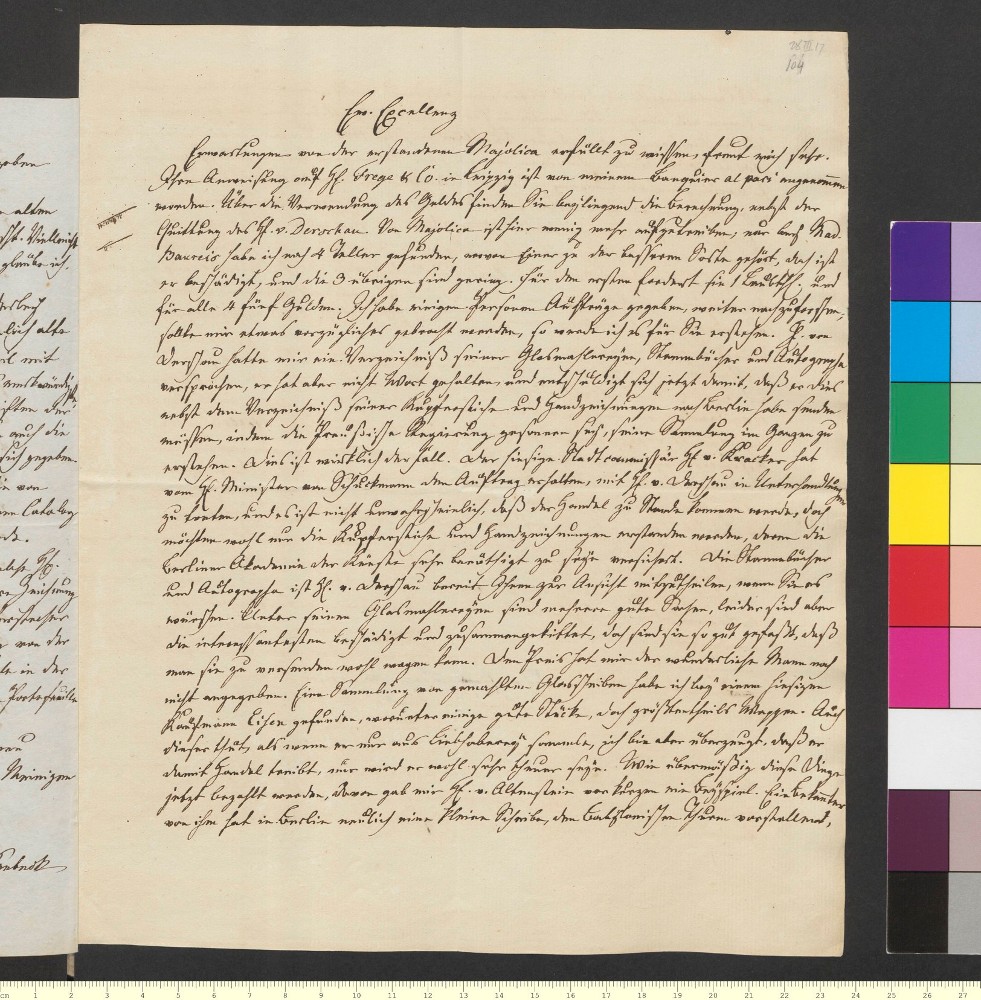 104
Ew. Excellenz
Erwartungen von der erstandenen Majolica erfüllt zu wissen, freut mich sehr.
Ihre Anweisung auf H. Frege & Co. in Leipzig ist von meinem Banquier al pari angenommen
worden. Über die Verwendung des Geldes finden Sie beyliegend die Berechnung, nebst der
Quittung des H. v. Derschau. Von Majolica ist hier wenig mehr aufzutreiben, nur bey Mad.
Baureis habe ich noch 4 Teller gefunden, wovon Einer zu der besseren Sorte gehört, doch ist
er beschädigt, und die 3 übrigen sind gering. Für den ersten fordert sie 1 Laubthl. und
für alle 4 fünf Gulden. Ich habe einigen Personen Aufträge gegeben, weiter nachzuforschen,
sollte mir etwas vorzügliches gebracht werden, so werde ich es für Sie erstehen. H. von
Derschau hatte mir ein Verzeichniß seiner Glasmahlereyen, Stammbücher und Autographa
versprochen, er hat aber nicht Wort gehalten, und entschuldigt sich jetzt damit, daß er dies
nebst dem Verzeichniß seiner Kupferstiche und Handzeichnungen nach Berlin habe senden
müssen, indem die Preußische Regierung gesonnen sey, seine Sammlung im Ganzen zu
erstehen. Dies ist wirklich der Fall. Der hiesige Stadtcommissär H. v. Kracker hat
vom H. Minister von Schuckmann den Auftrag erhalten, mit H. v. Derschau in Unterhandlung
zu treten, und es ist nicht unwahrscheinlich, daß der Handel zu Stande kommen werde, doch
möchten wohl nur die Kupferstiche und Handzeichnungen erstanden werden, deren die
Berliner Akademie der Künste sehr benöthigt zu seyn versichert. Die Stammbücher
und Autographa ist H. v. Derschau bereit Ihnen zur Ansicht mitzutheilen, wenn Sie es
wünschen. Unter seinen Glasmahlereyen sind mehrere gute Sachen, leider sind aber
die interessantesten beschädigt und zusammengekittet, doch sind sie so gut gefaßt, daß
man sie zu versenden wohl wagen kann. Den Preis hat mir der wunderliche Mann noch
nicht angegeben. Eine Sammlung von gemahlten Glasscheiben habe ich bey einem hiesigen
Kaufmann Eisen gefunden, worunter einige gute Stücke, doch größtentheils Wappen. Auch
dieser thut, als wenn er nur aus Liebhaberey sammle, ich bin aber überzeugt, daß er
damit Handel treibt, nur wird er wohl sehr theuer seyn. Wie übermäßig diese Dinge
jetzt bezahlt werden, davon gab mir H. v. Altenstein vor kurzem ein Beyspiel. Ein bekannter
von ihm hat in Berlin neulich eine kleine Scheibe, den Babylonischen Thurm vorstellend,